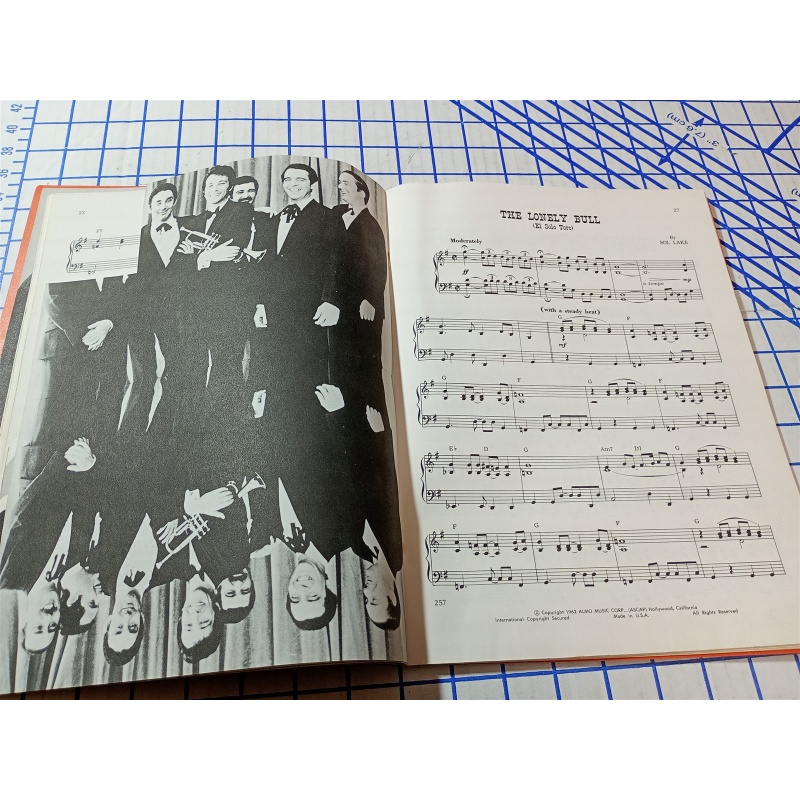 42
40
38
36
3" (7.6 cm)
22
F7
27
THE LONELY BULL
(El Solo Toro)
By
SOL LAKE
Moderately
ff
a tempo
mp
(with a steady beat)
G F
mf
G F G F
E♭ D G Am7 D7 G
F G F G
257
© Copyright 1962 ALMO MUSIC CORP., (ASCAP) Hollywood, California
International Copyright Secured Made in U.S.A. All Rights Reserved